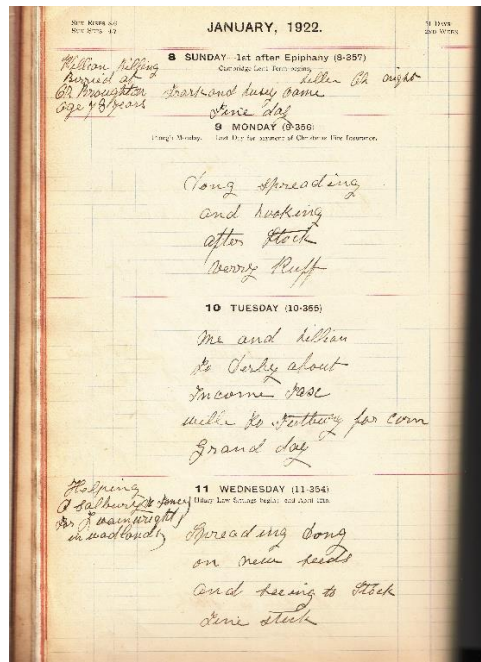 JANUARY, 1922.
31 DAYS
2ND WEEK
8 SUNDAY—1st after Epiphany (8-357)
Cambridge Lent Term begins.
William
Burried at
Ch Broughton
age 78 years
Frank and Lusey came
Fine day
9 MONDAY (9-356)
Plough Monday. Last Day for payment of Christmas Fire Insurance.
Dong spreading
and looking
after Stock
verry Ruff
10 TUESDAY (10-355)
Me and Lillian
to Derby about
Income Taxe
wille to Tutbury for corn
Grand day
11 WEDNESDAY (11-354)
Hilary Law Sittings begin; end April 12th.
Helping
A Salbury to fence
for J wainwright
in wadlands
Spreading Dong
on new seeds
and seeing to Stock
Fine